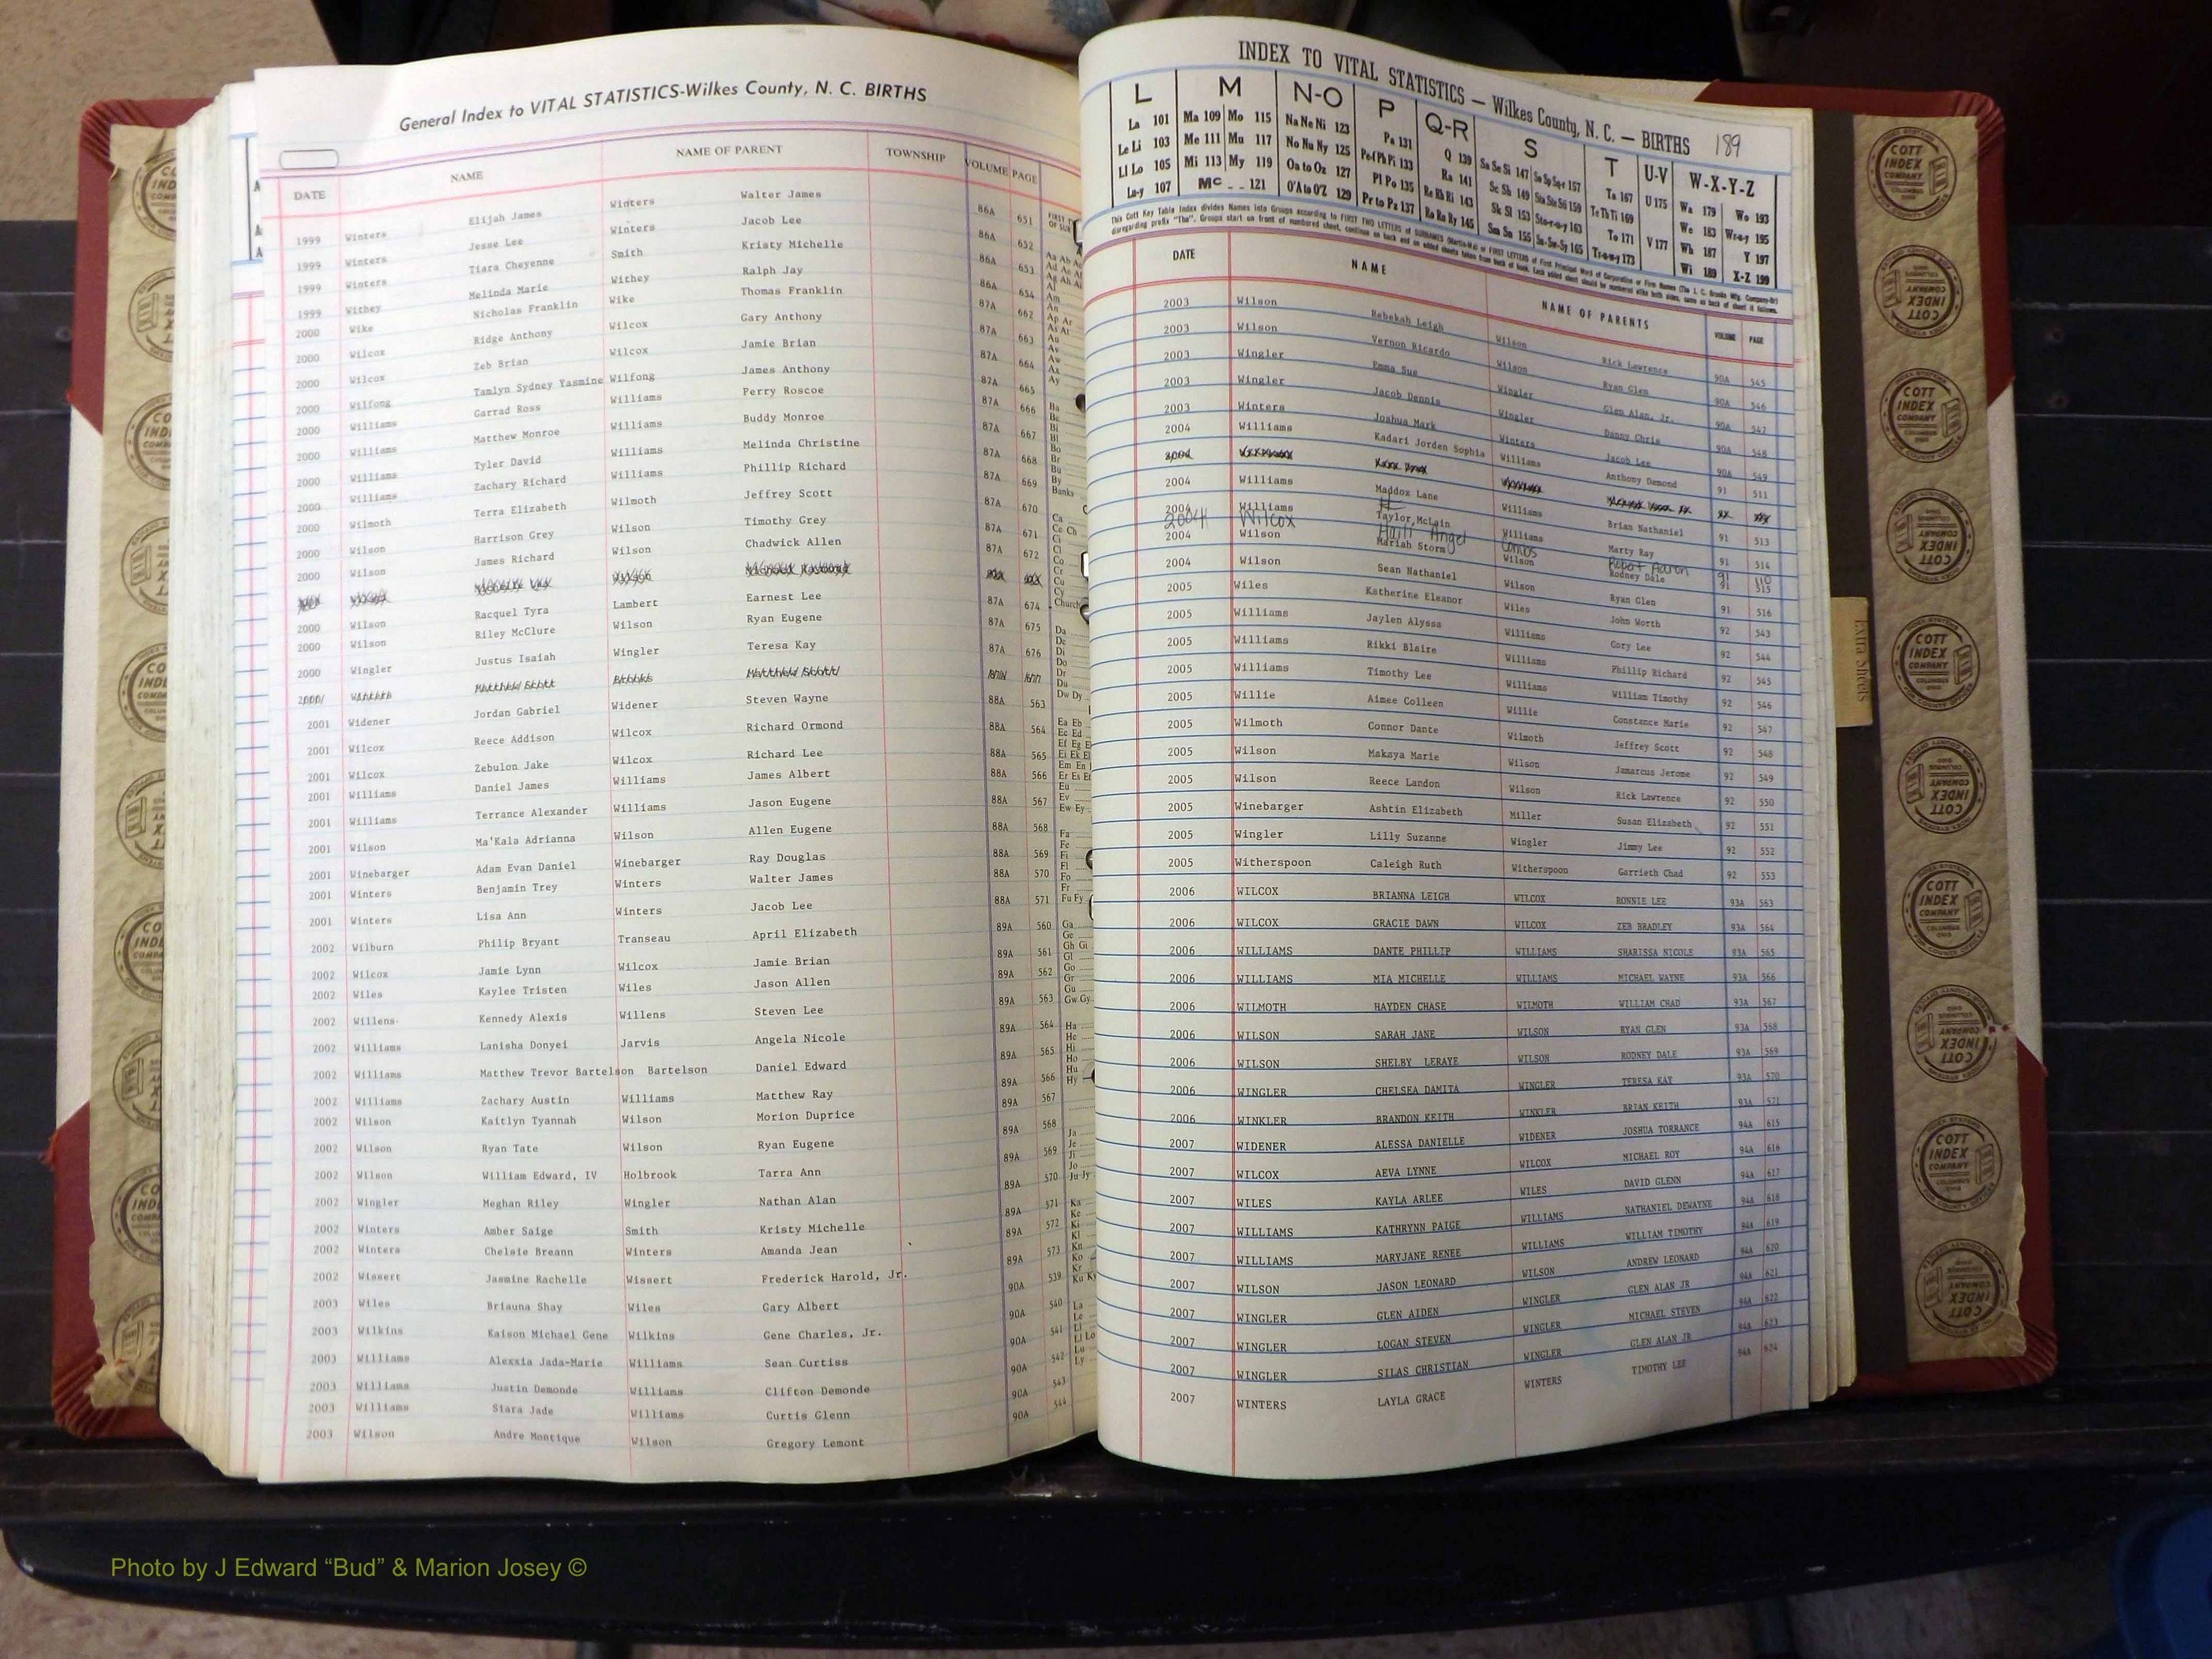 General Index to VITAL STATISTICS-Wilkes County, N. C. BIRTHS
DATE NAME NAME OF PARENT TOWNSHIP VOLUME PAGE
1999 Winters Elijah James Winters Walter James 86A 651
1999 Winters Jesse Lee Winters Jacob Lee 86A 652
1999 Winters Tiara Cheyenne Smith Kristy Michelle 86A 653
1999 Withey Melinda Marie Withey Ralph Jay 86A 654
2000 Wike Nicholas Franklin Wike Thomas Franklin 87A 662
2000 Wilcox Ridge Anthony Wilcox Gary Anthony 87A 663
2000 Wilcox Zeb Brian Wilcox Jamie Brian 87A 664
2000 Wilfong Tamlyn Sydney Yasmine Wilfong James Anthony 87A 665
2000 Williams Garrad Ross Williams Perry Roscoe 87A 666
2000 Williams Matthew Monroe Williams Buddy Monroe 87A 667
2000 Williams Tyler David Williams Melinda Christine 87A 668
2000 Williams Zachary Richard Williams Phillip Richard 87A 669
2000 Wilmoth Terra Elizabeth Wilmoth Jeffrey Scott 87A 670
2000 Wilson Harrison Grey Wilson Timothy Grey 87A 671
2000 Wilson James Richard Wilson Chadwick Allen 87A 672
2000 Wilson Racquel Tyra Lambert Earnest Lee 87A 674
2000 Wilson Riley McClure Wilson Ryan Eugene 87A 675
2000 Wingler Justus Isaiah Wingler Teresa Kay 87A 676
2000 Matthew Scott Brooks Matthew Scott
2001 Widener Jordan Gabriel Widener Steven Wayne 88A 563
2001 Wilcox Reece Addison Wilcox Richard Ormond 88A 564
2001 Wilcox Zebulon Jake Wilcox Richard Lee 88A 565
2001 Williams Daniel James Williams James Albert 88A 566
2001 Williams Terrance Alexander Williams Jason Eugene 88A 567
2001 Wilson Ma'Kala Adrianna Wilson Allen Eugene 88A 568
2001 Winebarger Adam Evan Daniel Winebarger Ray Douglas 88A 569
2001 Winters Benjamin Trey Winters Walter James 88A 570
2001 Winters Lisa Ann Winters Jacob Lee 88A 571
2002 Wilburn Philip Bryant Transeau April Elizabeth 89A 560
2002 Wilcox Jamie Lynn Wilcox Jamie Brian 89A 561
2002 Wiles Kaylee Tristen Wiles Jason Allen 89A 562
2002 Willens Kennedy Alexis Willens Steven Lee 89A 563
2002 Williams Lanisha Donyei Jarvis Angela Nicole 89A 564
2002 Williams Matthew Trevor Bartelson Bartelson Daniel Edward 89A 565
2002 Williams Zachary Austin Williams Matthew Ray 89A 566
2002 Wilson Kaitlyn Tyannah Wilson Morion Duprice 89A 567
2002 Wilson Ryan Tate Wilson Ryan Eugene 89A 568
2002 Wilson William Edward, IV Holbrook Tarra Ann 89A 569
2002 Wingler Meghan Riley Wingler Nathan Alan 89A 570
2002 Winters Amber Saige Smith Kristy Michelle 89A 571
2002 Winters Chelsie Breann Winters Amanda Jean 89A 572
2002 Wissert Jasmine Rachelle Wissert Frederick Harold, Jr. 89A 573
2003 Wiles Briauna Shay Wiles Gary Albert 90A 539
2003 Wilkins Kaison Michael Gene Wilkins Gene Charles, Jr. 90A 540
2003 Williams Alexxia Jada-Marie Williams Sean Curtiss 90A 541
2003 Williams Justin Demonde Williams Clifton Demonde 90A 542
2003 Williams Siara Jade Williams Curtis Glenn 90A 543
2003 Wilson Andre Montique Wilson Gregory Lemont 90A 544
INDEX TO VITAL STATISTICS — Wilkes County, N. C. — BIRTHS 189
L M N-O P Q-R S T U-V W-X-Y-Z
La 101 Ma 109 Mo 115 Na Ne Ni 123 Pa 131 Q 139 Sa Se Si 147 So Sp Sq-r 157 Ta 167 U 175 Wa 179 Wo 193
Le Li 103 Me 111 Mu 117 No Nu Ny 125 Pe-f Ph Pi 133 Ra 141 Sc Sh 149 Sta Ste Sti 159 Te Th Ti 169 We 183 Wr-u-y 195
Ll Lo 105 Mi 113 My 119 Oa to Oz 127 Pl Po 135 Re Rh Ri 143 Sk Sl 153 Sto-r-u-y 163 To 171 V 177 Wh 187 Y 197
Lu-y 107 Mc 121 O'A to O'Z 129 Pr to Pz 137 Ro Ru Ry 145 Sm Sn 155 Su-Sw-Sy 165 Tr-u-w-y 173 Wi 189 X-Z 199
DATE NAME NAME OF PARENTS VOLUME PAGE
2003 Wilson Rebekah Leigh Wilson Rick Lawrence 90A 545
2003 Wilson Vernon Ricardo Wilson Ryan Glen 90A 546
2003 Wingler Emma Sue Wingler Glen Alan, Jr. 90A 547
2003 Wingler Jacob Dennis Wingler Danny Chris 90A 548
2003 Winters Joshua Mark Winters Jacob Lee 90A 549
2004 Williams Kadari Jorden Sophia Williams Anthony Demond 91 511
2004 Williams Maddox Lane Williams Brian Nathaniel 91 513
2004 Williams Taylor McLain Williams Marty Ray 91 514
2004 Wilcox Haili Angel Combs Robert Aaron 91 110
2004 Wilson Mariah Storm Wilson Rodney Dale 91 515
2004 Wilson Sean Nathaniel Wilson Ryan Glen 91 516
2005 Wiles Katherine Eleanor Wiles John Worth 92 543
2005 Williams Jaylen Alyssa Williams Cory Lee 92 544
2005 Williams Rikki Blaire Williams Phillip Richard 92 545
2005 Williams Timothy Lee Williams William Timothy 92 546
2005 Willie Aimee Colleen Willie Constance Marie 92 547
2005 Wilmoth Connor Dante Wilmoth Jeffrey Scott 92 548
2005 Wilson Makaya Marie Wilson Jamarcus Jerome 92 549
2005 Wilson Reece Landon Wilson Rick Lawrence 92 550
2005 Winebarger Ashtin Elizabeth Miller Susan Elizabeth 92 551
2005 Wingler Lilly Suzanne Wingler Jimmy Lee 92 552
2005 Witherspoon Caleigh Ruth Witherspoon Garrieth Chad 92 553
2006 WILCOX BRIANNA LEIGH WILCOX RONNIE LEE 93A 563
2006 WILCOX GRACIE DAWN WILCOX ZEB BRADLEY 93A 564
2006 WILLIAMS DANTE PHILLIP WILLIAMS SHARISSA NICOLE 93A 565
2006 WILLIAMS MIA MICHELLE WILLIAMS MICHAEL WAYNE 93A 566
2006 WILMOTH HAYDEN CHASE WILMOTH WILLIAM CHAD 93A 567
2006 WILSON SARAH JANE WILSON RYAN GLEN 93A 568
2006 WILSON SHELBY LERAYE WILSON RODNEY DALE 93A 569
2006 WINGLER CHELSEA DAMITA WINGLER TERESA KAY 93A 570
2006 WINKLER BRANDON KEITH WINKLER BRIAN KEITH 93A 571
2007 WIDENER ALESSA DANIELLE WIDENER JOSHUA TORRANCE 94A 615
2007 WILCOX AEVA LYNNE WILCOX MICHAEL ROY 94A 616
2007 WILES KAYLA ARLEE WILES DAVID GLENN 94A 617
2007 WILLIAMS KATHRYNN PAIGE WILLIAMS NATHANIEL DEWAYNE 94A 618
2007 WILLIAMS MARYJANE RENEE WILLIAMS WILLIAM TIMOTHY 94A 619
2007 WILSON JASON LEONARD WILSON ANDREW LEONARD 94A 620
2007 WINGLER GLEN AIDEN WINGLER GLEN ALAN JR 94A 621
2007 WINGLER LOGAN STEVEN WINGLER MICHAEL STEVEN 94A 622
2007 WINGLER SILAS CHRISTIAN WINGLER GLEN ALAN JR 94A 623
2007 WINTERS LAYLA GRACE WINTERS TIMOTHY LEE 94A 624
Extra Sheets
COTT INDEX COMPANY
Photo by J Edward “Bud” & Marion Josey ©